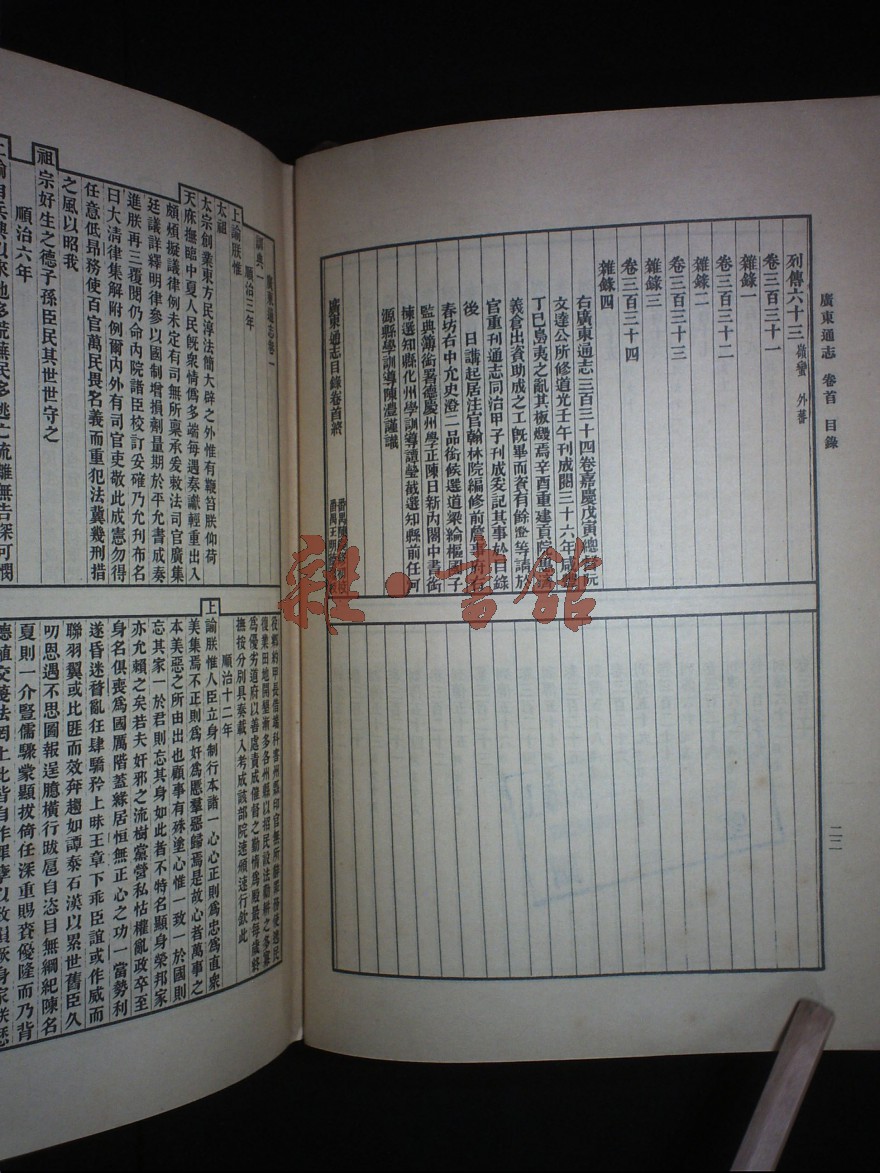 廣東通志 卷首 目錄
二二
列傳六十三 嶺蠻 外蕃
卷三百三十一
雜錄一
卷三百三十二
雜錄二
卷三百三十三
雜錄三
卷三百三十四
雜錄四
右廣東通志三百三十四卷嘉慶戊寅總督阮
文達公所修道光壬午刊成閱三十六年咸豐
丁巳島夷之亂其板燬焉辛酉重建貢院
義倉出資助成之工既畢而資有餘澄等請於
官重刊通志同治甲子刊成爰記其事於目錄
後 日講起居注官翰林院編修前詹事府右
春坊右中允史澄二品銜候選道梁綸樞國子
監典簿銜署德慶州學正陳日新內閣中書銜
揀選知縣化州學訓導譚瑩截選知縣前任河
源縣學訓導陳澧謹識
廣東通志目錄卷首終
番禺陳
番禺王
廣東通志卷一
訓典一
順治三年
上諭朕惟
太祖
太宗創業東方民淳法簡大辟之外惟有鞭笞朕仰荷
天庥撫臨中夏人民既衆情僞多端每遇奏讞輕重出入
頗煩擬議律例未定有司無所禀承爰敕法司官廣集
廷議詳釋明律參以國制增損劑量期於平允書成奏
進朕再三覆閱仍命內院諸臣校訂妥確乃允刊布名
曰大清律集解附例爾內外有司官吏敬此成憲勿得
任意低昂務使百官萬民畏名義而重犯法冀幾刑措
之風以昭我
祖宗好生之德子孫臣民其世世守之
順治六年
上諭自兵興以來地多荒蕪民多逃亡流離無告深可憫
復業田地開墾漸多各州縣以招民設法勸耕之多寡
爲優劣道府以善處責成催督之勤惰爲殿最每歲終
撫按分別具奏載入考成該部院速頒速行欽此
順治十二年
上諭朕惟人臣立身制行本諸一心心正則爲忠爲直衆
美集焉不正則爲奸爲慝羣惡歸焉是故心者萬事之
本美惡之所由出也顧事有殊塗心惟一致一於國則
忘其家一於君則忘其身如此者不特名顯身榮邦家
亦允賴之矣若夫奸邪之流樹黨營私怙權亂政卒至
身名俱喪爲國厲階蓋緣居恒無正心之功一當勢利
遂昏迷瞀亂狂肆驕矜上昧王章下乖臣誼或作威而
聯羽翼或比匪而效奔趨如譚泰石漢以累世舊臣久
叨恩遇不思圖報逞臆橫行跋扈自恣目無綱紀陳名
夏則一介豎儒驟蒙顯拔倚任深重賜賚優隆而乃背
德植交蔑法罔上此皆自作罪孽以致
雜·書館